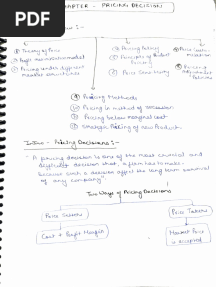 PDF
CHAPTER - PRICING DECISION
① Theory of Price
② Profit maximisation model
③ Pricing under different market structures
Pricing Policy
Principles of Product Pricing
Price Sensitivity
Pricing Methods
Pricing in period of recession
Pricing below marginal cost
Strategic Pricing of new Product
Intro - Pricing Decisions :-
"A pricing decision is one of the most crucial and
difficult decision that a firm has to make.
Because such a decision affect the long term survival
of any company"
Two Ways of Pricing Decisions
Price Takers
Cost + Profit Margin
Market Price
is accepted